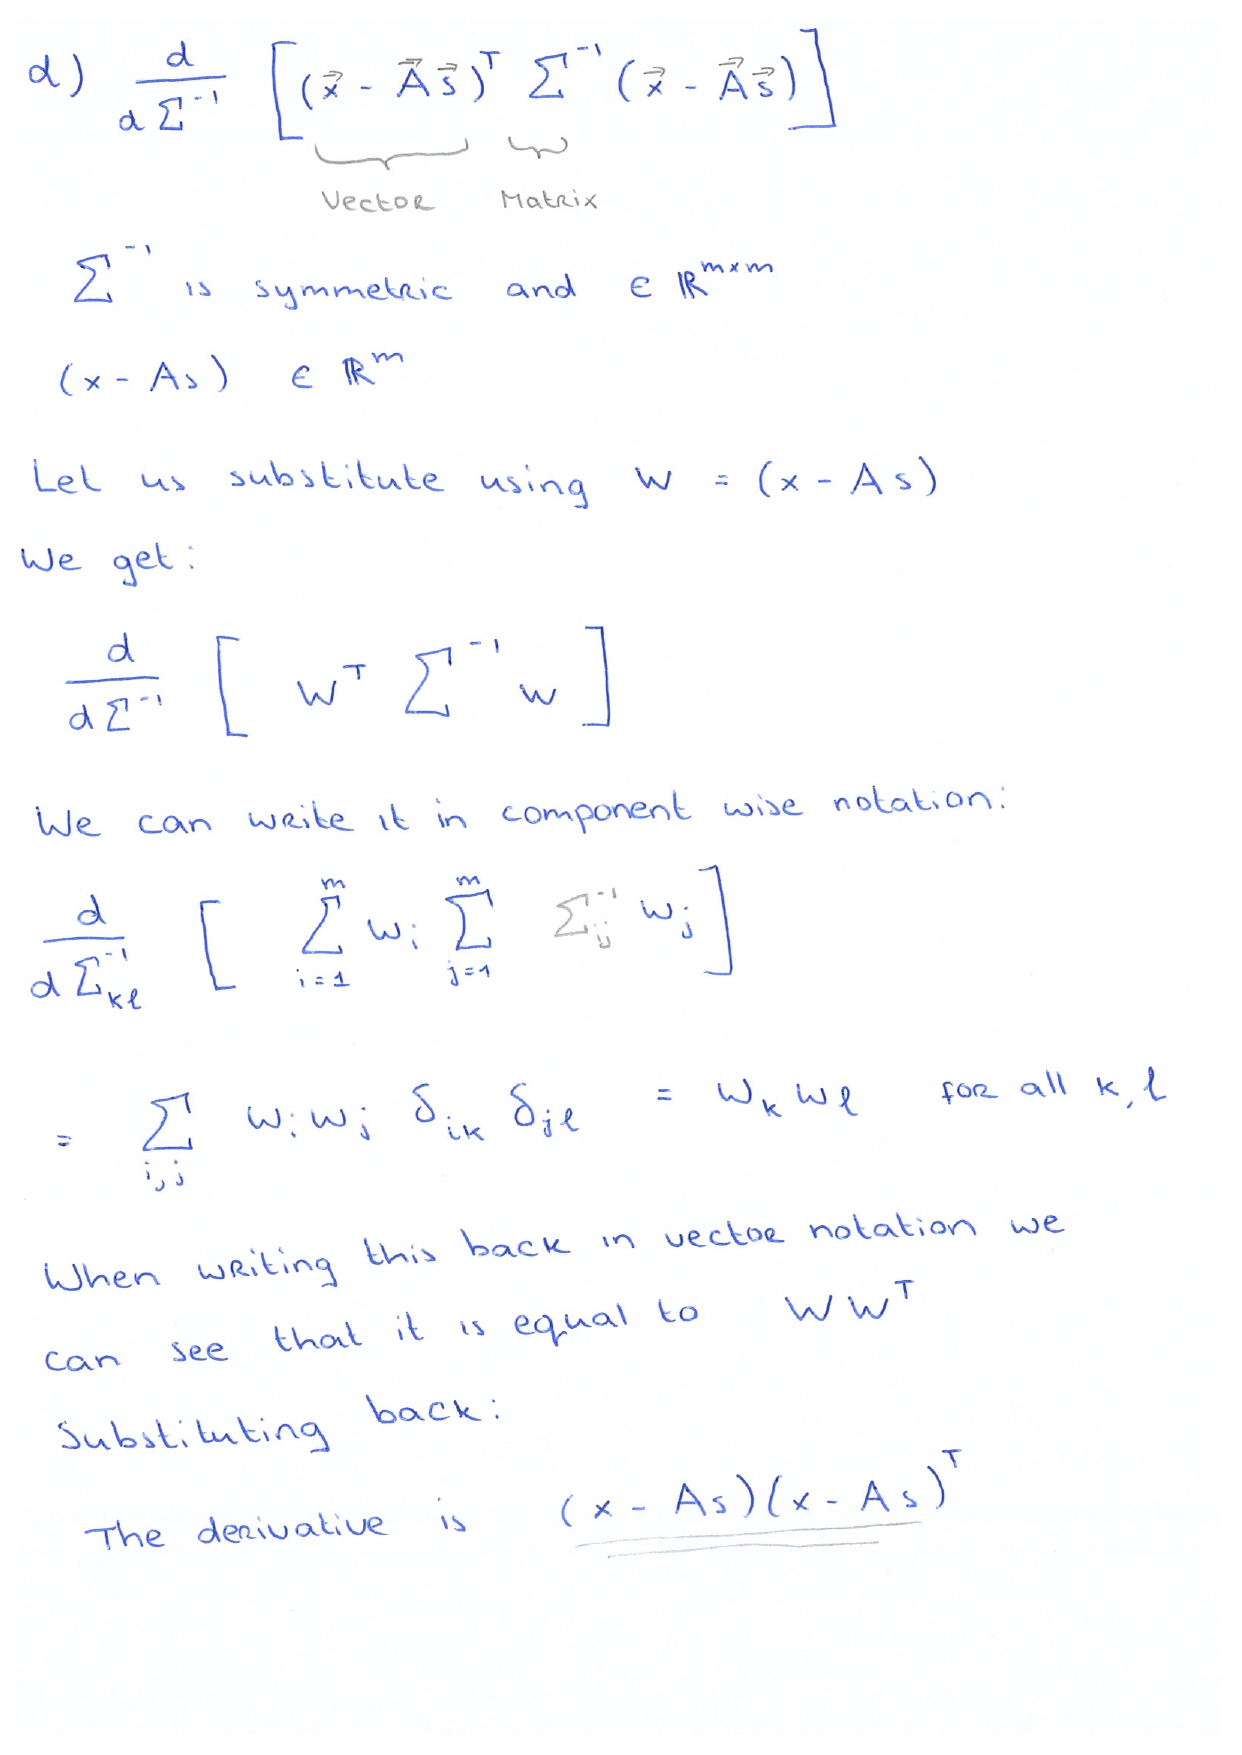 d) d/dΣ⁻¹ [(x⃗ - A⃗s⃗)ᵀ Σ⁻¹ (x⃗ - A⃗s⃗)]
Vector Matrix
Σ⁻¹ is symmetric and ∈ ℝᵐˣᵐ
(x - As) ∈ ℝᵐ
Let us substitute using w = (x - As)
We get:
d/dΣ⁻¹ [ wᵀ Σ⁻¹ w ]
We can write it in component wise notation:
d/dΣ⁻¹ₖₗ [ Σᵢ₌₁ᵐ wᵢ Σⱼ₌₁ᵐ Σ⁻¹ᵢⱼ wⱼ ]
= Σᵢ,ⱼ wᵢ wⱼ δᵢₖ δⱼₗ = wₖ wₗ for all k, l
When writing this back in vector notation we
can see that it is equal to w wᵀ
Substituting back:
The derivative is (x - As)(x - As)ᵀ